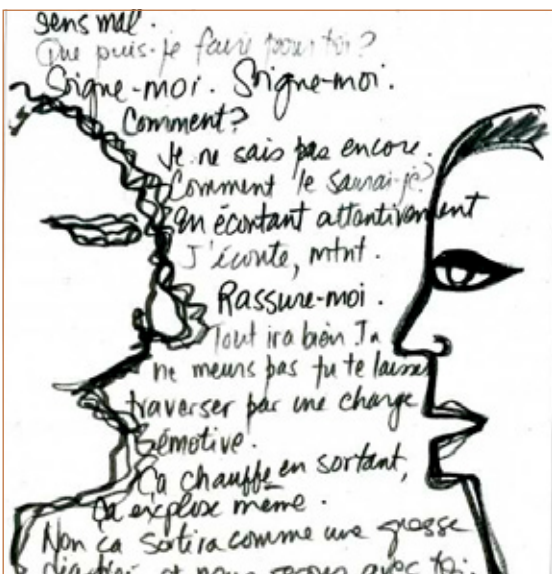 sens mal.
Que puis-je faire pour toi?
Soigne-moi. Soigne-moi.
Comment?
Je ne sais pas encore.
Comment le saurai-je?
En écoutant attentivement
J'écoute, mtnt.
Rassure-moi.
Tout ira bien. Tu
ne meurs pas tu te laisses
traverser par une charge
émotive.
Ça chauffe en sortant,
Ça explose même.
Non ça sortira comme une grosse
et nous serons avec toi.